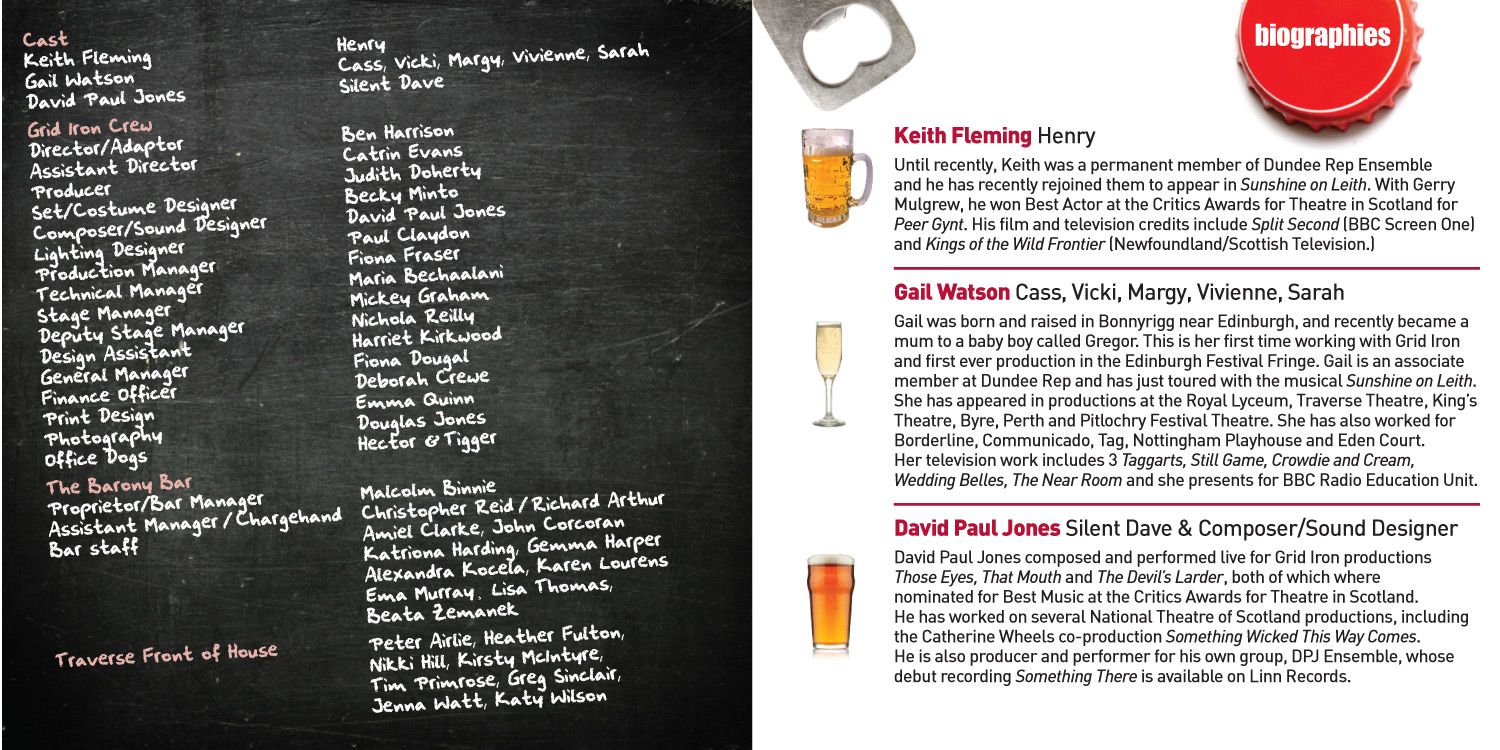 Cast
Keith Fleming Henry
Gail Watson Cass, Vicki, Margy, Vivienne, Sarah
David Paul Jones Silent Dave
Grid Iron Crew
Director/Adaptor Ben Harrison
Assistant Director Catrin Evans
Producer Judith Doherty
Set/Costume Designer Becky Minto
Composer/Sound Designer David Paul Jones
Lighting Designer Paul Claydon
Production Manager Fiona Fraser
Technical Manager Maria Bechaalani
Stage Manager Mickey Graham
Deputy Stage Manager Nichola Reilly
Design Assistant Harriet Kirkwood
General Manager Fiona Dougal
Finance Officer Deborah Crewe
Print Design Emma Quinn
Photography Douglas Jones
Office Dogs Hector & Tigger
The Barony Bar
Proprietor/Bar Manager Malcolm Binnie
Assistant Manager / Chargehand Christopher Reid / Richard Arthur
Bar staff Amiel Clarke, John Corcoran
Katriona Harding, Gemma Harper
Alexandra Kocela, Karen Lourens
Ema Murray, Lisa Thomas,
Beata Zemanek
Traverse Front of House Peter Airlie, Heather Fulton,
Nikki Hill, Kirsty McIntyre,
Tim Primrose, Greg Sinclair,
Jenna Watt, Katy Wilson
biographies
Keith Fleming Henry
Until recently, Keith was a permanent member of Dundee Rep Ensemble
and he has recently rejoined them to appear in Sunshine on Leith. With Gerry
Mulgrew, he won Best Actor at the Critics Awards for Theatre in Scotland for
Peer Gynt. His film and television credits include Split Second (BBC Screen One)
and Kings of the Wild Frontier (Newfoundland/Scottish Television.)
Gail Watson Cass, Vicki, Margy, Vivienne, Sarah
Gail was born and raised in Bonnyrigg near Edinburgh, and recently became a
mum to a baby boy called Gregor. This is her first time working with Grid Iron
and first ever production in the Edinburgh Festival Fringe. Gail is an associate
member at Dundee Rep and has just toured with the musical Sunshine on Leith.
She has appeared in productions at the Royal Lyceum, Traverse Theatre, King's
Theatre, Byre, Perth and Pitlochry Festival Theatre. She has also worked for
Borderline, Communicado, Tag, Nottingham Playhouse and Eden Court.
Her television work includes 3 Taggarts, Still Game, Crowdie and Cream,
Wedding Belles, The Near Room and she presents for BBC Radio Education Unit.
David Paul Jones Silent Dave & Composer/Sound Designer
David Paul Jones composed and performed live for Grid Iron productions
Those Eyes, That Mouth and The Devil's Larder, both of which where
nominated for Best Music at the Critics Awards for Theatre in Scotland.
He has worked on several National Theatre of Scotland productions, including
the Catherine Wheels co-production Something Wicked This Way Comes.
He is also producer and performer for his own group, DPJ Ensemble, whose
debut recording Something There is available on Linn Records.